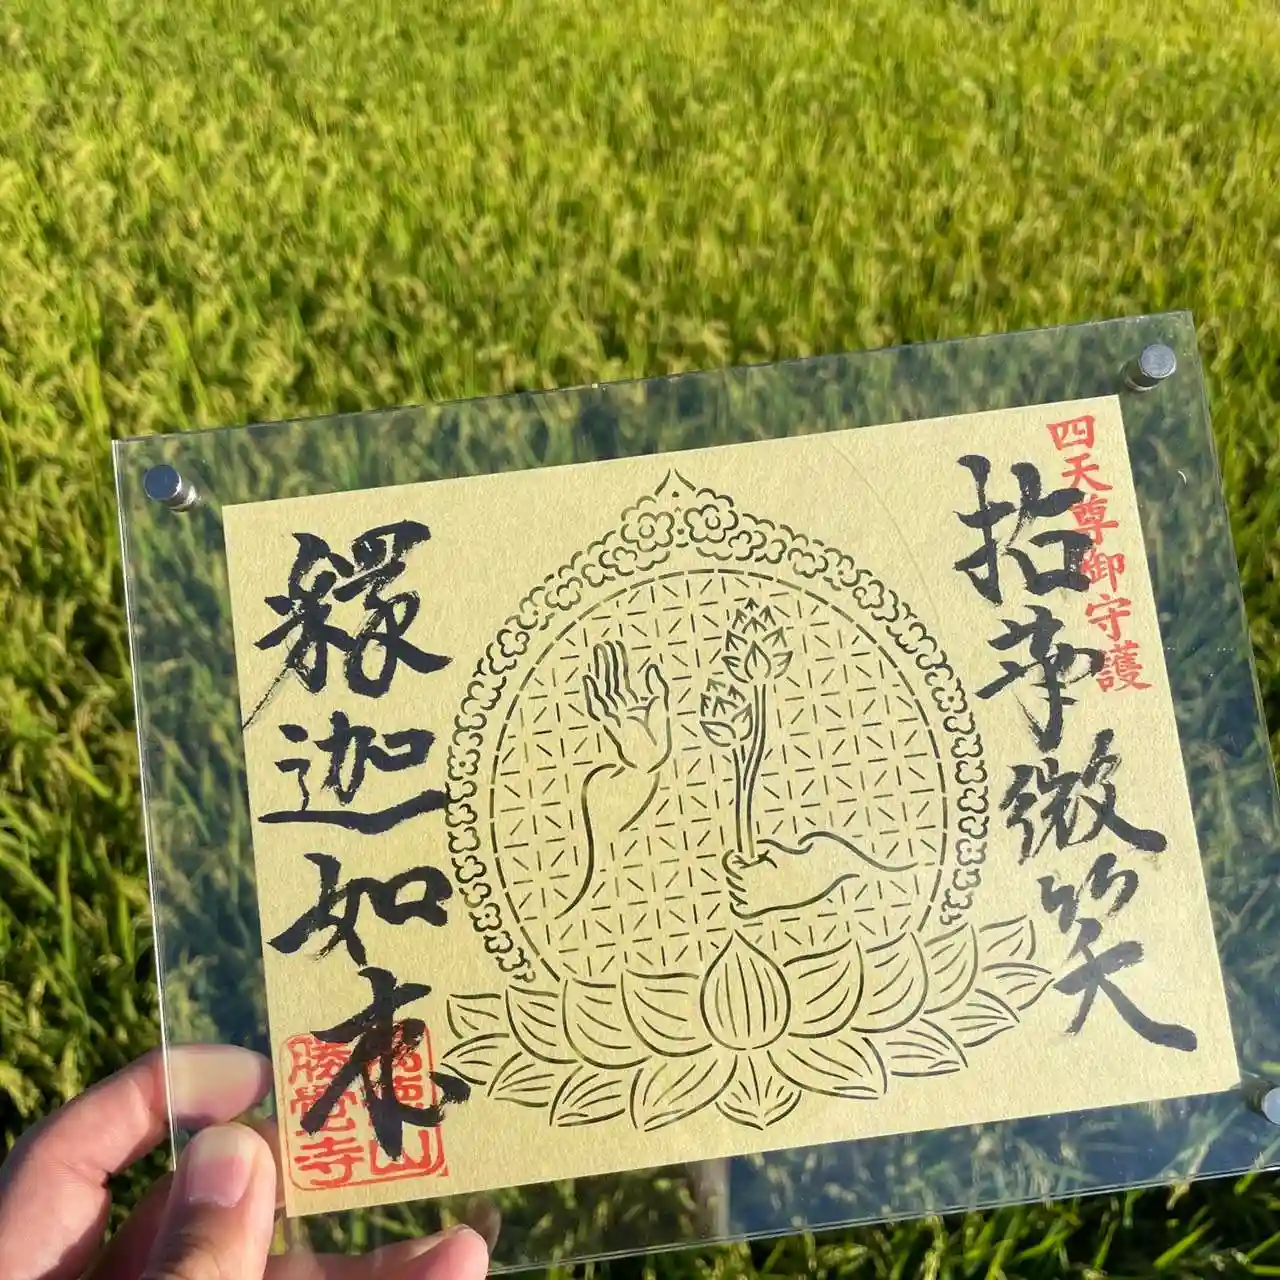 四天尊御守護
拈華微笑
釋迦如来
萬徳山
勝覚寺